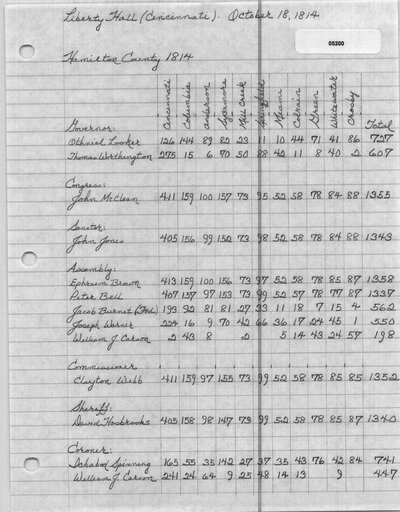 Liberty Hall (Cincinnati). October 18, 1814
05200
Hamilton County 1814
Cincinnati Columbia Anderson Sycamore Mill Creek Springfield Miami Colrain Green Whitewater Crosby Total
Governor:
Othniel Looker 126 144 89 82 23 11 10 44 71 41 86 727
Thomas Worthington 275 15 6 70 50 88 42 11 8 40 2 607
Congress:
John McClean 411 159 100 157 73 95 52 58 78 84 88 1355
Senator:
John Jones 405 156 99 152 73 98 52 58 78 84 88 1343
Assembly:
Ephraim Brown 413 159 100 156 73 97 52 58 78 85 87 1358
Peter Bell 407 157 97 153 73 99 52 57 78 77 87 1337
Jacob Burnet (Fed.) 193 92 81 81 27 33 11 18 7 15 4 562
Joseph Warner 224 16 9 70 42 66 36 17 24 45 1 550
William J. Carson 2 43 8 2 5 14 43 24 57 198
Commissioner:
Clayton Webb 411 159 97 155 73 99 52 58 78 85 85 1352
Sheriff:
David Hosbrooks 405 158 98 147 73 99 52 58 78 85 87 1340
Coroner:
Ichabod Spinning 165 55 35 142 27 37 35 43 76 42 84 741
William J. Carson 241 24 64 9 25 48 14 13 9 447